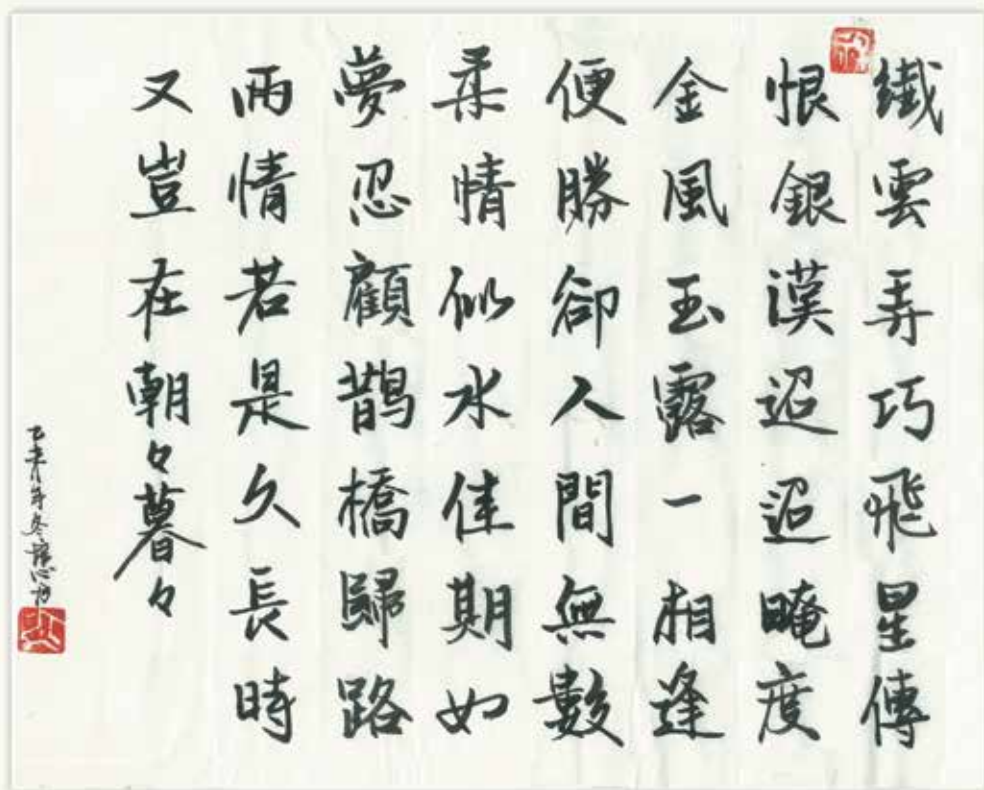 纖雲弄巧飛星傳
恨銀漢迢迢晻度
金風玉露一相逢
便勝卻人間無數
柔情似水佳期如
夢忍顧鵲橋歸路
兩情若是久長時
又豈在朝々暮々
乙未年冬